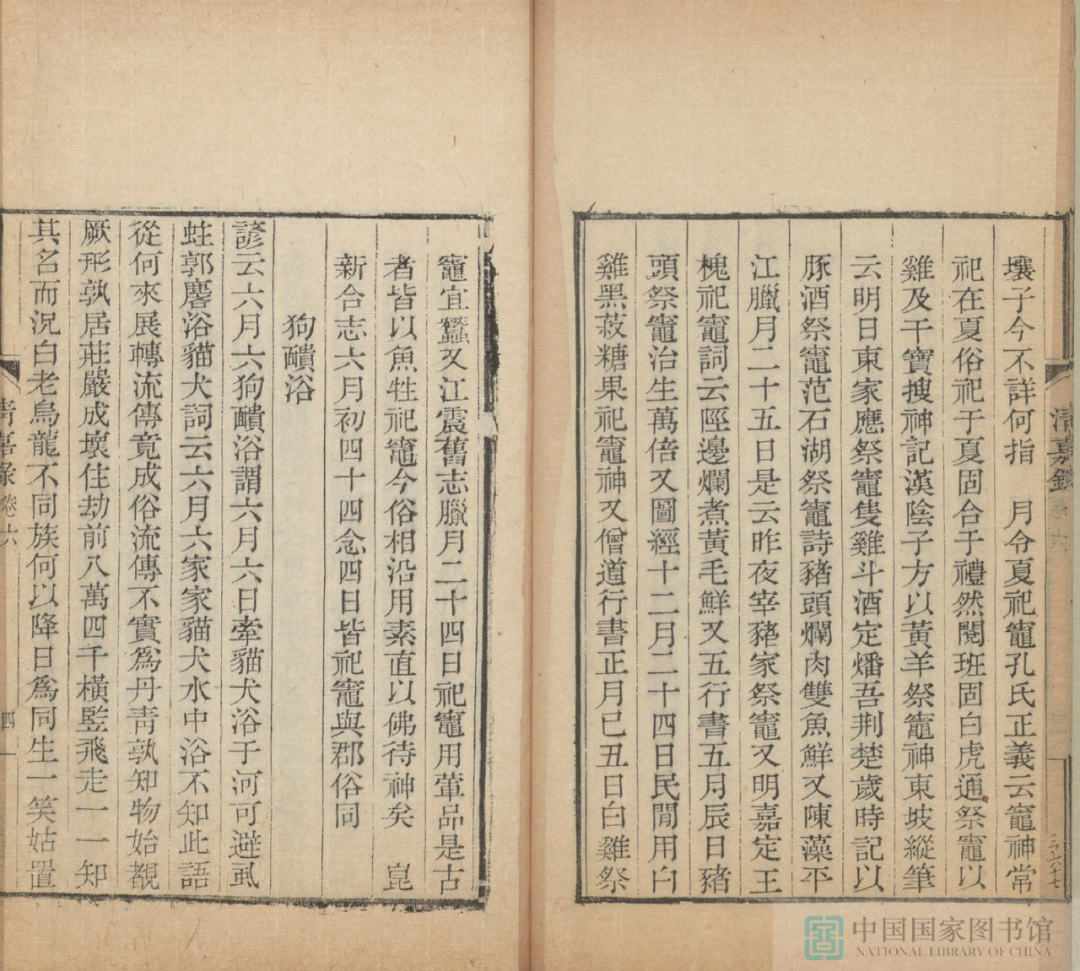 壤子今不詳何指　月令夏祀竈孔氏正義云竈神常
祀在夏俗祀于夏固合于禮然閱班固白虎通祭竈以
雞及干寶搜神記漢陰子方以黃羊祭竈神東坡縱筆
云明日東家應祭竈隻雞斗酒定燔吾荆楚歲時記以
豚酒祭竈范石湖祭竈詩豬頭爛肉雙魚鮮又陳藻平
江臘月二十五日是云昨夜宰豬家祭竈又明嘉定王
槐祀竈詞云陘邊爛煮黃毛鮮又五行書五月辰日豬
頭祭竈治生萬倍又圖經十二月二十四日民閒用白
雞黑菽糖果祀竈神又僧道行書正月己丑日白雞祭
清嘉錄
竈宜蠶又江震舊志臘月二十四日祀竈用葷品是古
者皆以魚牲祀竈今俗相沿用素直以佛待神矣　崑
新合志六月初四十四念四日皆祀竈與郡俗同
狗䫭浴
諺云六月六狗䫭浴謂六月六日牽貓犬浴于河可避虱
蛀郭麐浴貓犬詞云六月六家家貓犬水中浴不知此語
從何來展轉流傳竟成俗流傳不實爲丹靑孰知物始覩
厥形孰居莊嚴成壞住劫前八萬四千橫監飛走一一知
其名而況白老烏龍不同族何以降日爲同生一笑姑置
清嘉錄卷六
四
中国国家图书馆
NATIONAL LIBRARY OF CHINA